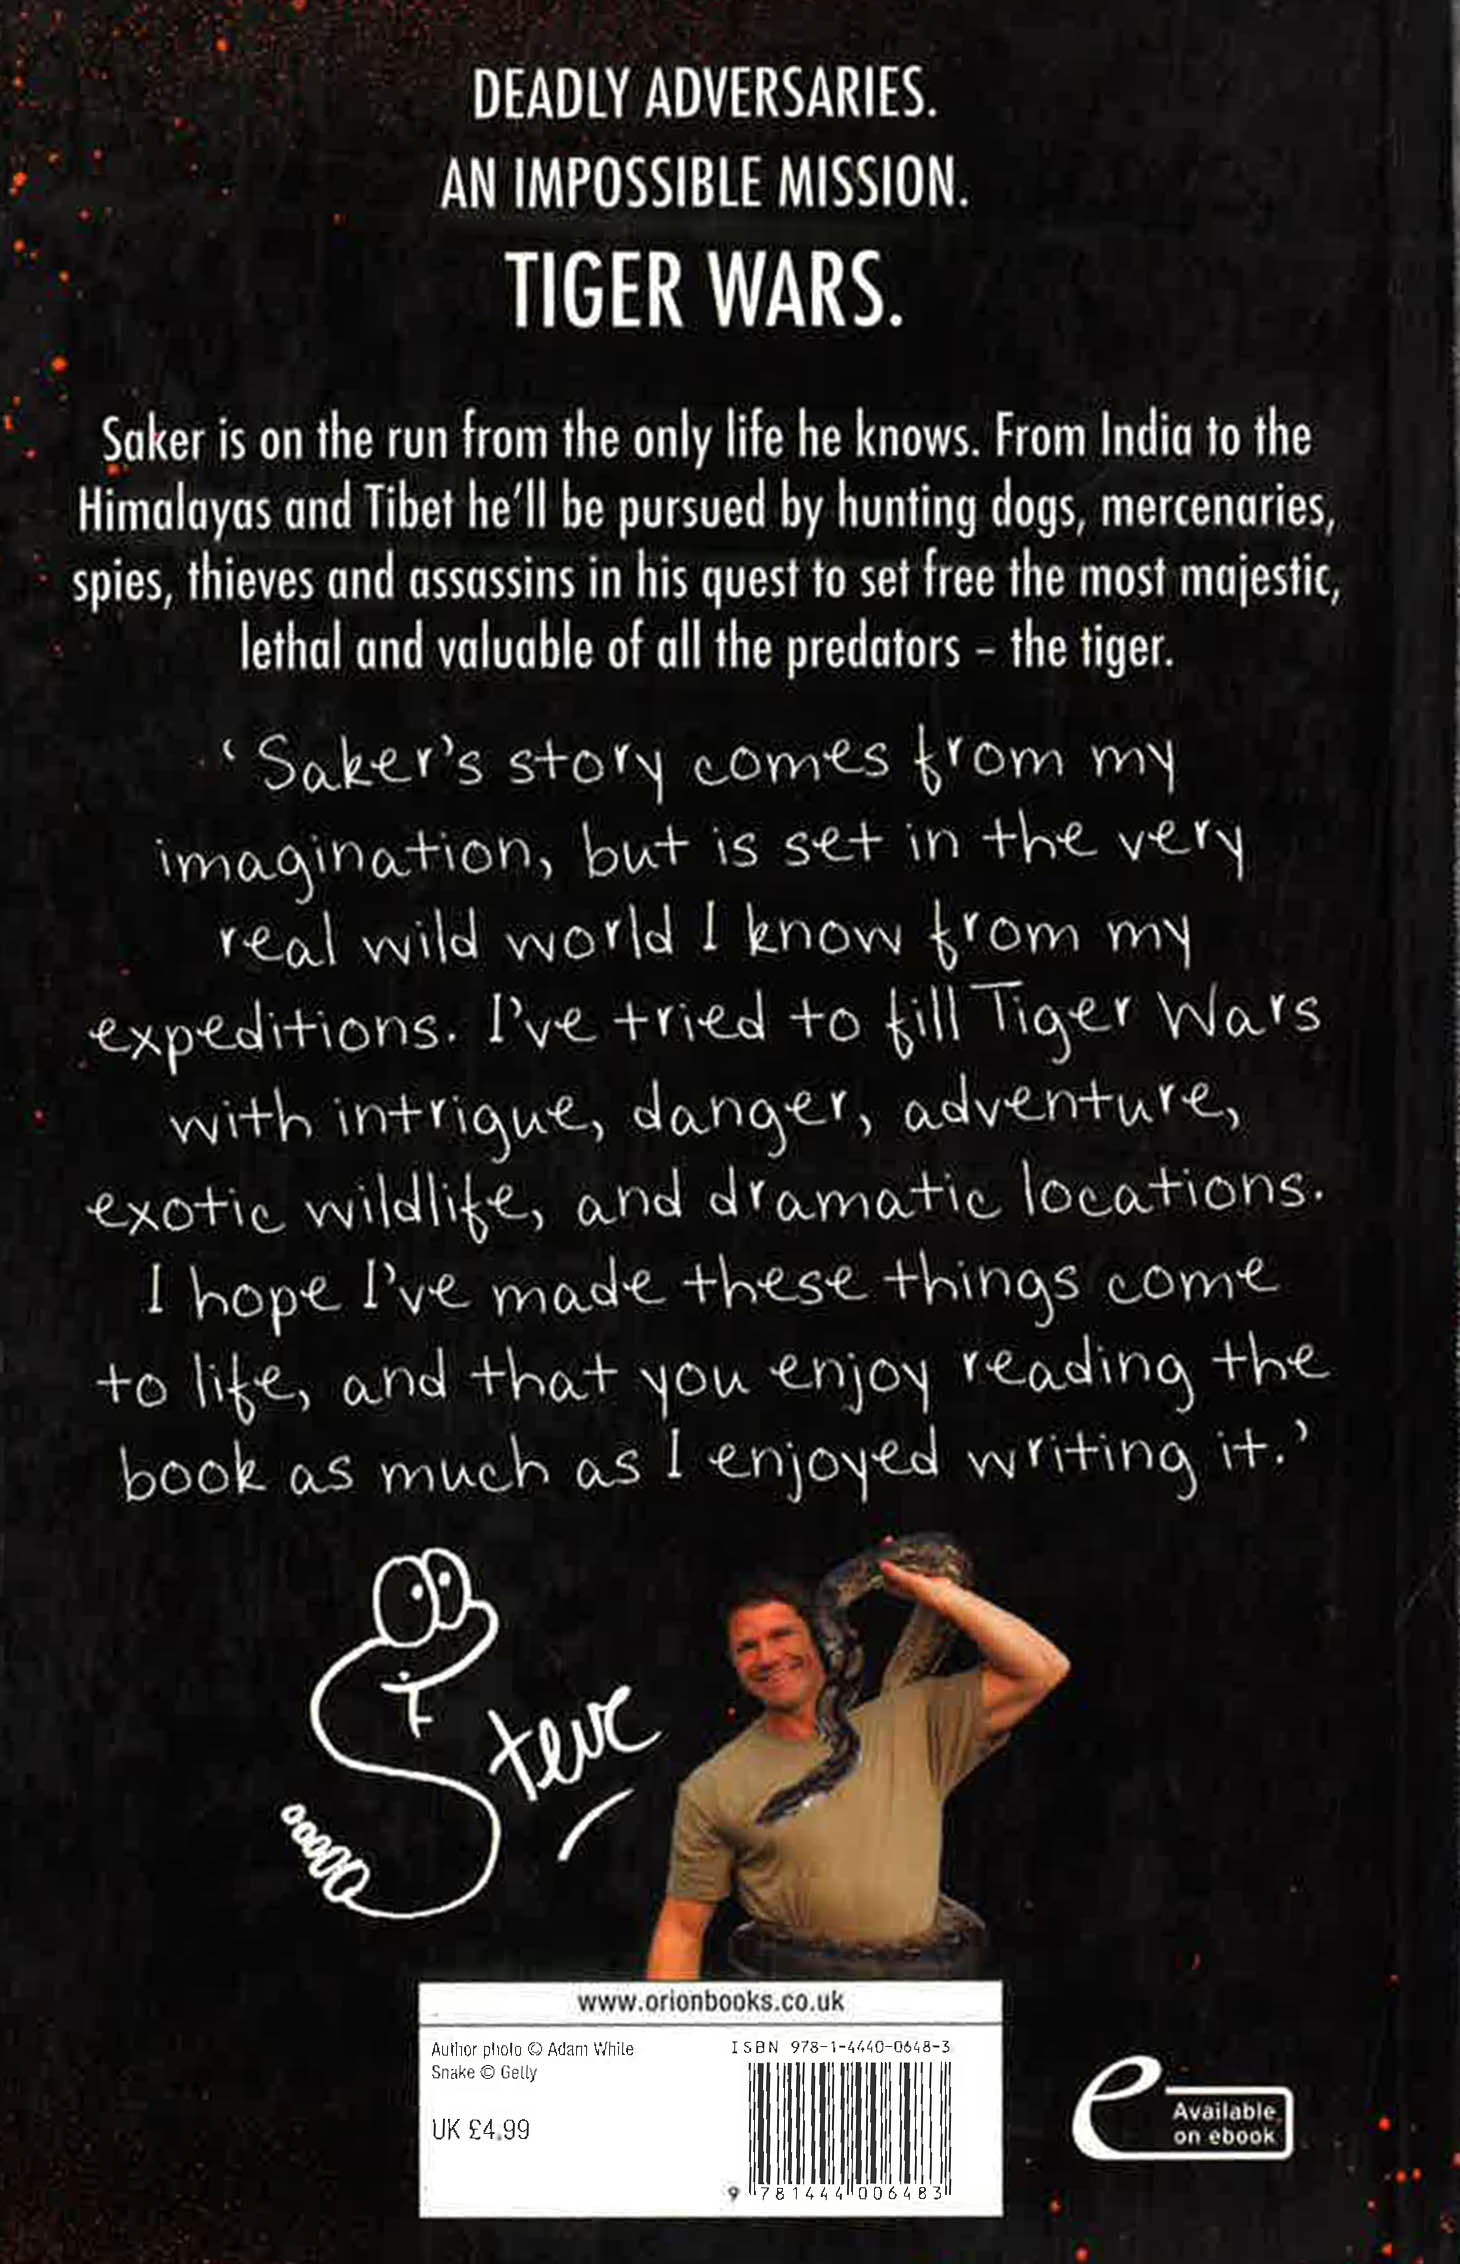 DEADLY ADVERSARIES.
AN IMPOSSIBLE MISSION.
TIGER WARS.
Saker is on the run from the only life he knows. From India to the
Himalayas and Tibet he'll be pursued by hunting dogs, mercenaries,
spies, thieves and assassins in his quest to set free the most majestic,
lethal and valuable of all the predators – the tiger.
'Saker's story comes from my
imagination, but is set in the very
real wild world I know from my
expeditions. I've tried to fill Tiger Wars
with intrigue, danger, adventure,
exotic wildlife, and dramatic locations.
I hope I've made these things come
to life, and that you enjoy reading the
book as much as I enjoyed writing it.'
Steve
www.orionbooks.co.uk
Author photo © Adam White
Snake © Getty
UK £4.99
ISBN 978-1-4440-0648-3
9 781444 006483
e
Available
on ebook